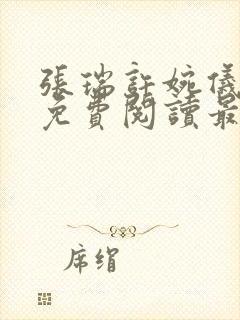 張瑞許婉儀
免費閱讀最
席絹